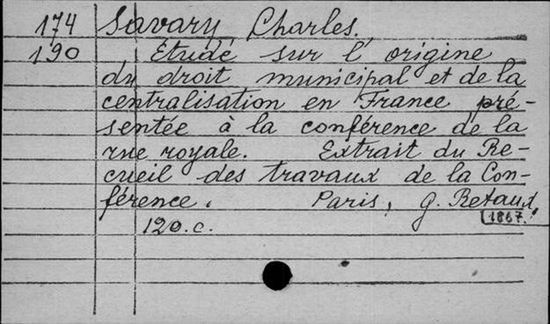 174 Savary Charles.
190 Etude sur l'origine
du droit municipal et de la
centralisation en France, pré-
sentée à la conférence de la
rue royale. Extrait du Re-
cueil des travaux de la Con-
férence. Paris, G. Retaux,
1867.
120.c.